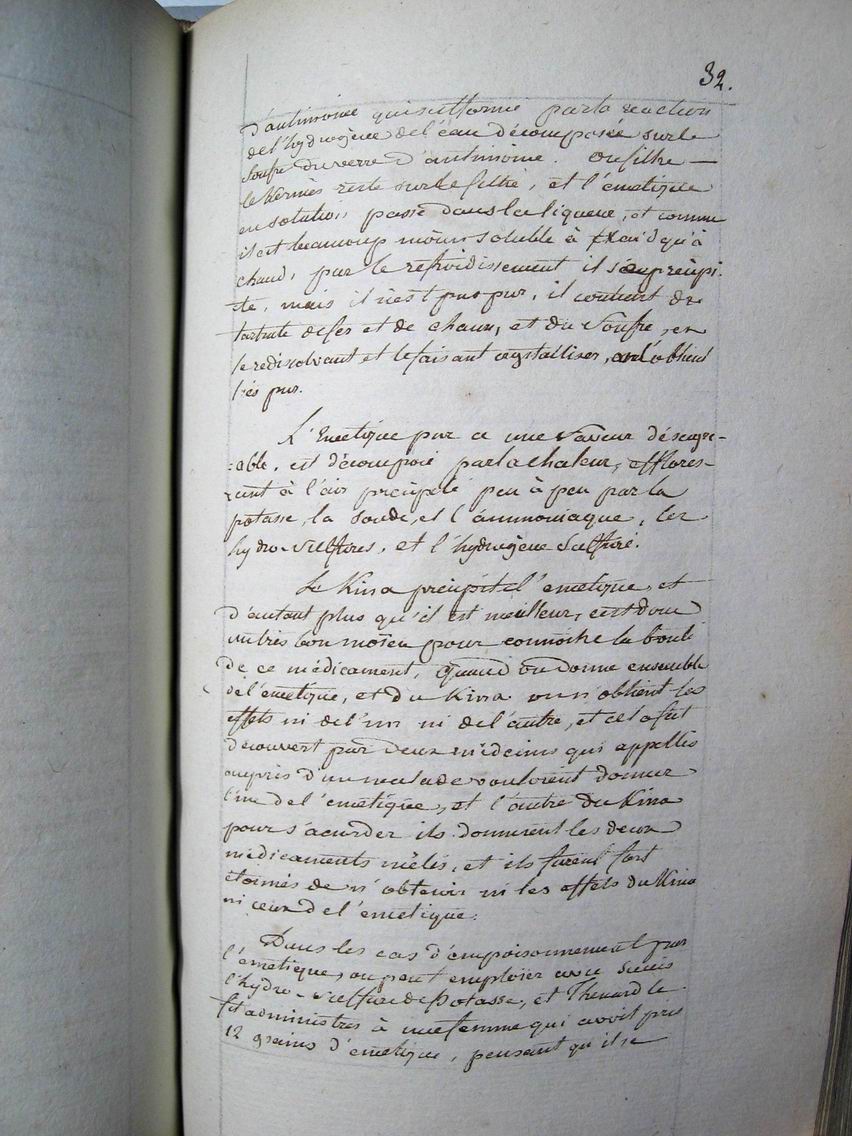 32.
d'antimoine qui est formé par la reaction
de l'hydrogène de l'eau décomposée sur le
soufre du verre d'antimoine. on filtre —
le Kermès reste sur le filtre, et l'emetique
en solution passe dans la liqueur, et comme
il est beaucoup moins soluble à froid qu'à
chaud, par le refroidissement il s'en precipi-
te, mais il n'est pas pur, il contient du
tartrite de fer et de chaux, et du soufre, en
le redissolvant et le faisant crystalliser, on l'obtient
très pur.
L'Emetique pur a une saveur désagre-
:able, est décomposé par la chaleur, efflores-
cent à l'air precipité peu à peu par la
potasse, la soude, et l'ammoniaque, les
hydro-sulfures, et l'hydrogène sulfuré.
Le Kina precipite l'emetique, et
d'autant plus qu'il est meilleur, c'est donc
un très bon moïen pour connoitre la bonté
de ce médicament, quand on donne ensemble
de l'emetique, et du Kina on n'obtient les
effets ni de l'un ni de l'autre, et cela fut
decouvert par deux médecins qui appellés
auprès d'un malade vouloient donner
l'un de l'emetique, et l'autre du Kina
pour s'acorder ils donnerent les deux
médicaments mêlés, et ils furent fort
étonnés de n'obtenir ni les effets du Kina
ni ceux de l'emetique.
Dans les cas d'empoisonnement par
l'emetique, on peut emploier avec succès
l'hydro-sulfure de Potasse, et Thenard le
fit administrer à une femme qui avoit pris
12 grains d'emetique, pensant qu'il se